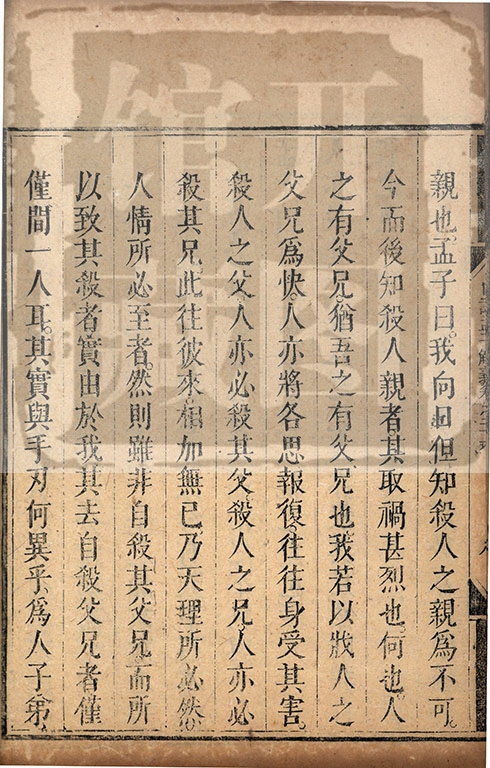 親也。孟子曰。我向日但知殺人之親為不可。
今而後知殺人親者。其取禍甚烈也。何也。人
之有父兄。猶吾之有父兄也。我若以戕人之
父兄為快。人亦將各思報復。往往身受其害。
殺人之父。人亦必殺其父。殺人之兄。人亦必
殺其兄。此往彼來。相加無已。乃天理所必然。
人情所必至者。然則雖非自殺其父兄。而所
以致其殺者。實由於我。其去自殺父兄者。僅
僅間一人耳。其實與手刃何異乎。為人子弟